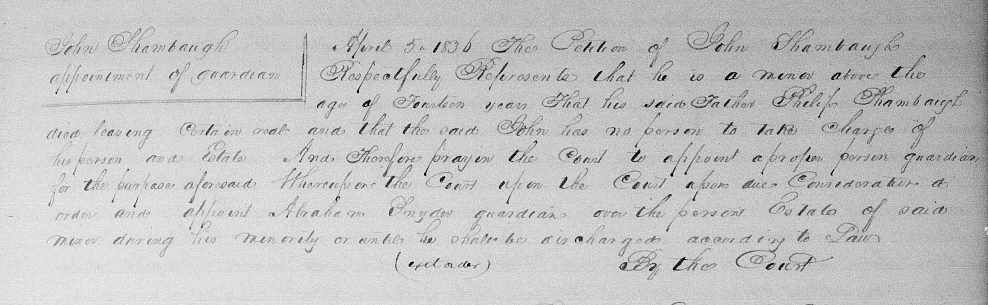 John Shambaugh
appointment of guardian
April 5th 1836 The Petition of John Shambaugh
Respectfully Represents that he is a minor above the
age of Fourteen years That his said Father Philip Shambaugh
died leaving Certain real and that the said John has no person to take charge of
his person and Estate And Therefore prayen the Court to appoint a proper person guardian
for the purpose aforesaid Whereupon the Court upon the Court upon due Consideration d
order and appoint Abraham Snyder guardian over the person Estate of said
minor during his minority or until he shall be discharged according to Law
(ext order) By the Court